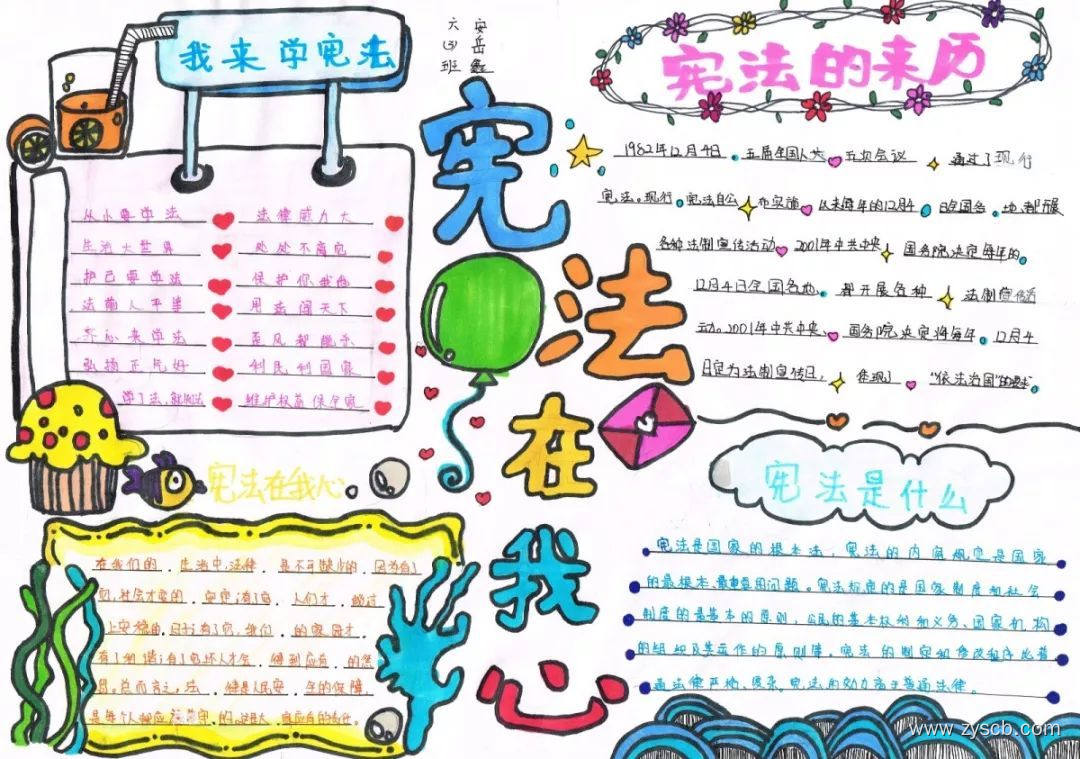 六(3)班
安岳鑫
我来学宪法
从小要学法 法律威力大
生活大世界 处处不离它
护己要学法 保护你我他
法前人平等 用法闯天下
齐心来学法 歪风都
弘扬正气好 利民利国家
学了法,就用法 维护权益保平安
宪法在我心
宪法在我心
在我们的生活中,法律是不可缺少的因为有了
它,社会才变的安定;有了它,人们才能过
上安稳的日子;有了它,我们的家园才
有了和谐;有了它坏人才会得到应有的惩
罚,总而言之,法律是人民安全的保障,
是每个人都应该遵守的。
宪法的来历
1982年12月4日五届全国人大五次会议通过了现行
宪法。现行宪法自公布实施以来每年的12月4日全国各地都开展
各种法制宣传活动2001年中共中央国务院决定每年的
12月4日全国各地都开展各种法制宣传活
动。2001年中共中央、国务院决定将每年12月4
日定为法制宣传日,体现了“依法治国”的要求
宪法是什么
宪法是国家的根本法,宪法的内容规定是国家
的最根本、最重要的问题。宪法规定的是国家制度和社会
制度的最基本的原则,公民的基本权利和义务、国家机构
的组织及其运作的原则等。宪法的制定和修改程序比普
通法律严格、复杂。宪法的效力高于普通法律。
www.zyscb.com